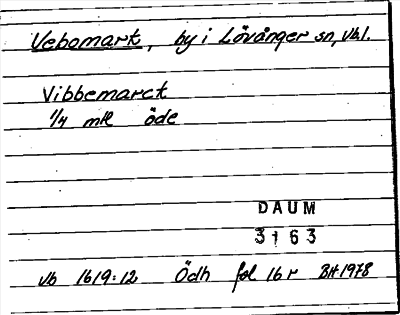 Vebomark, by i Lövånger sn, Vbl.
Vibbemarck
1/4 mtl öde
DAUM
3163
Vb 1619:12 Ödh fol 16 r BH 1978